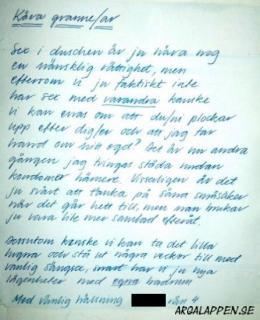 Kära granne/ar
Sex i duschen är ju nära nog
en mänsklig rättighet, men
eftersom vi ju faktiskt inte
har sex med varandra kanske
vi kan enas om att du/ni plockar
upp efter dig/er och att jag tar
hand om mitt eget? Det är nu andra
gången jag tvingas städa undan
kondomer härnere. Visserligen är det
ju svårt att tänka på såna småsaker
när det går hett till, men man brukar
ju vara lite mer samlad efteråt.
Dessutom kanske vi kan ta det lilla
lugna och stå ut några veckor till med
vanlig sängsex, snart har vi ju nya
lägenheter med egna badrum
Med vänlig hälsning vån 4
ARGALAPPEN.SE